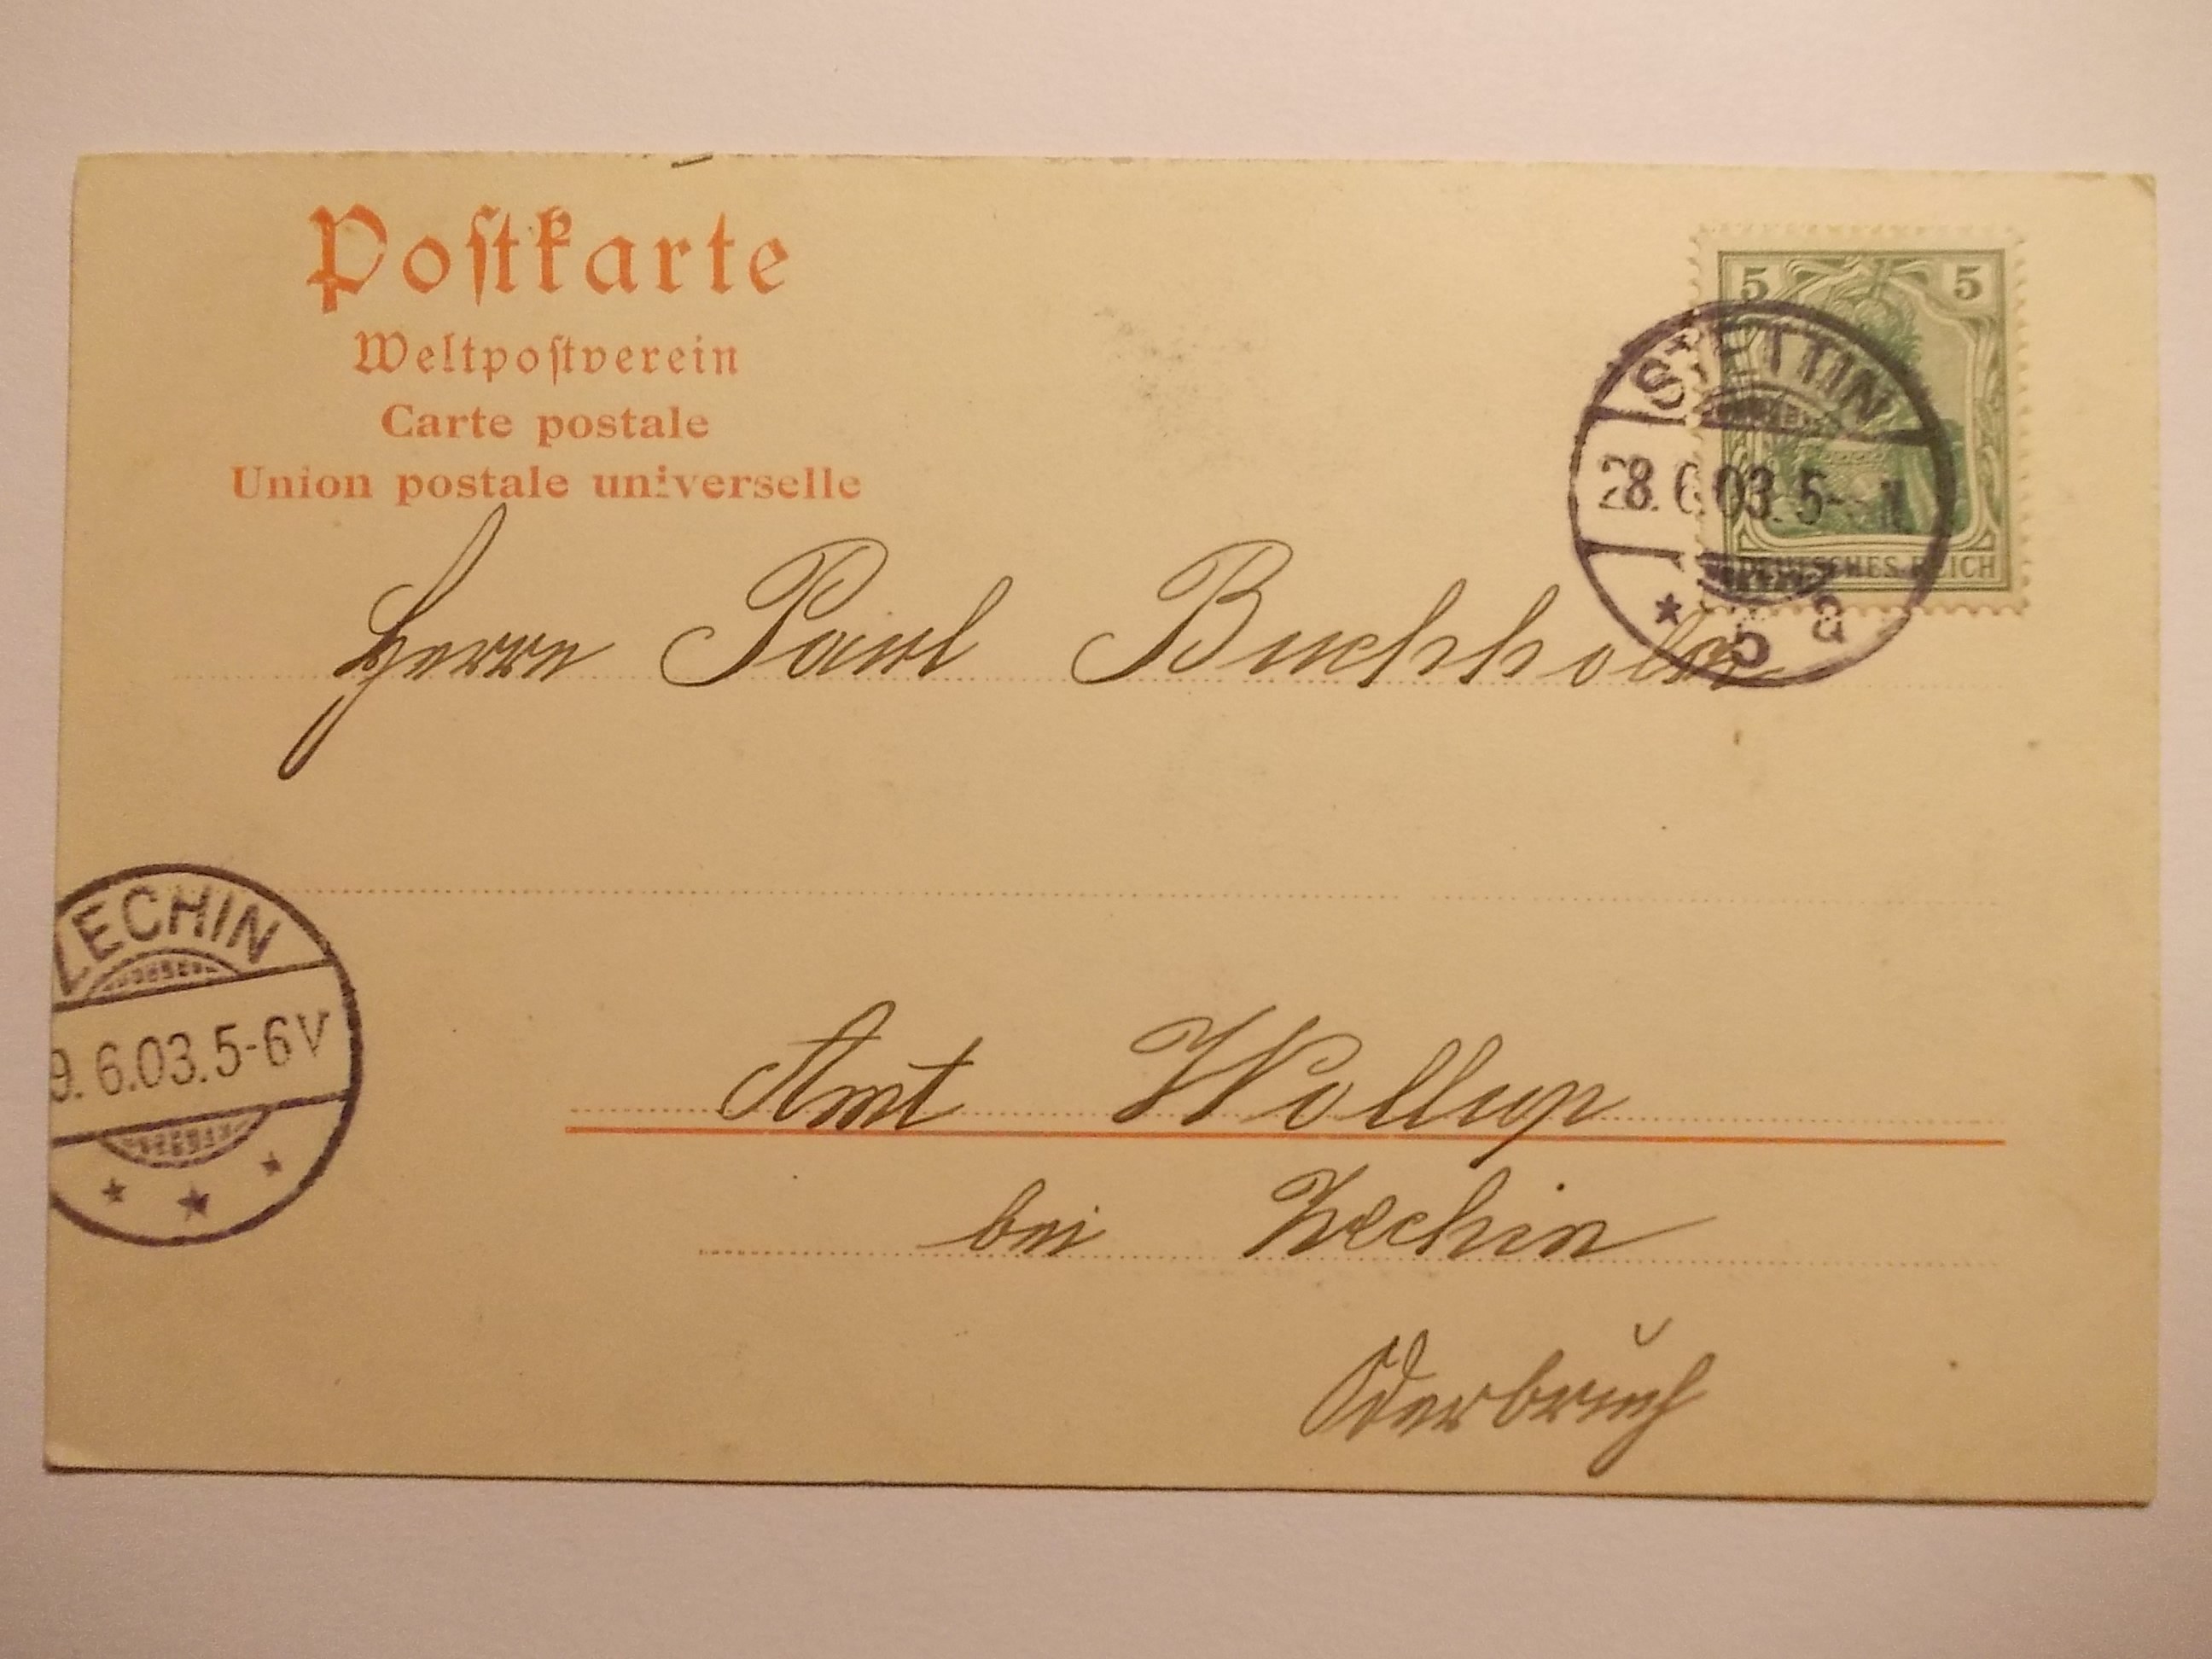 Postkarte
Weltpostverein
Carte postale
Union postale universelle
5 5
DEUTSCHES REICH
STETTIN
28.6.03.5-
* c a
Herrn Paul Buchholz
ZECHIN
9.6.03.5-6V
Amt Wollup
bei Zechin
Oderbruch